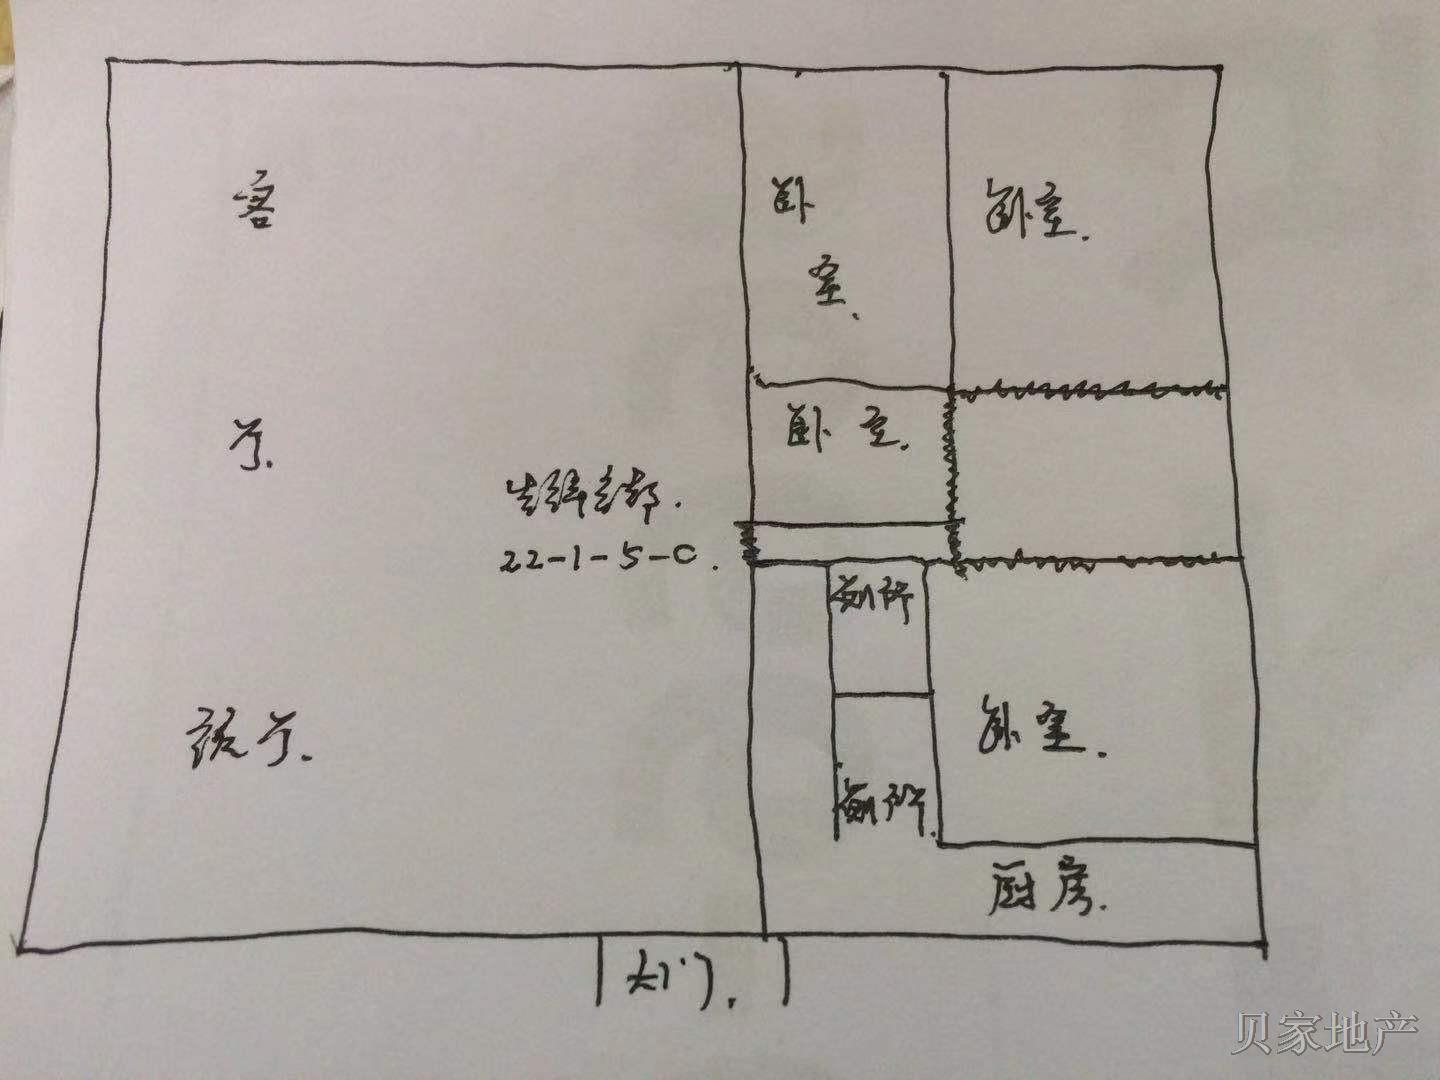 客
厅.
卧
室.
卧室.
卧 室.
22-1-5-C.
厕所
厕所.
卧室.
饭厅.
厨房.
大门.
贝家地产